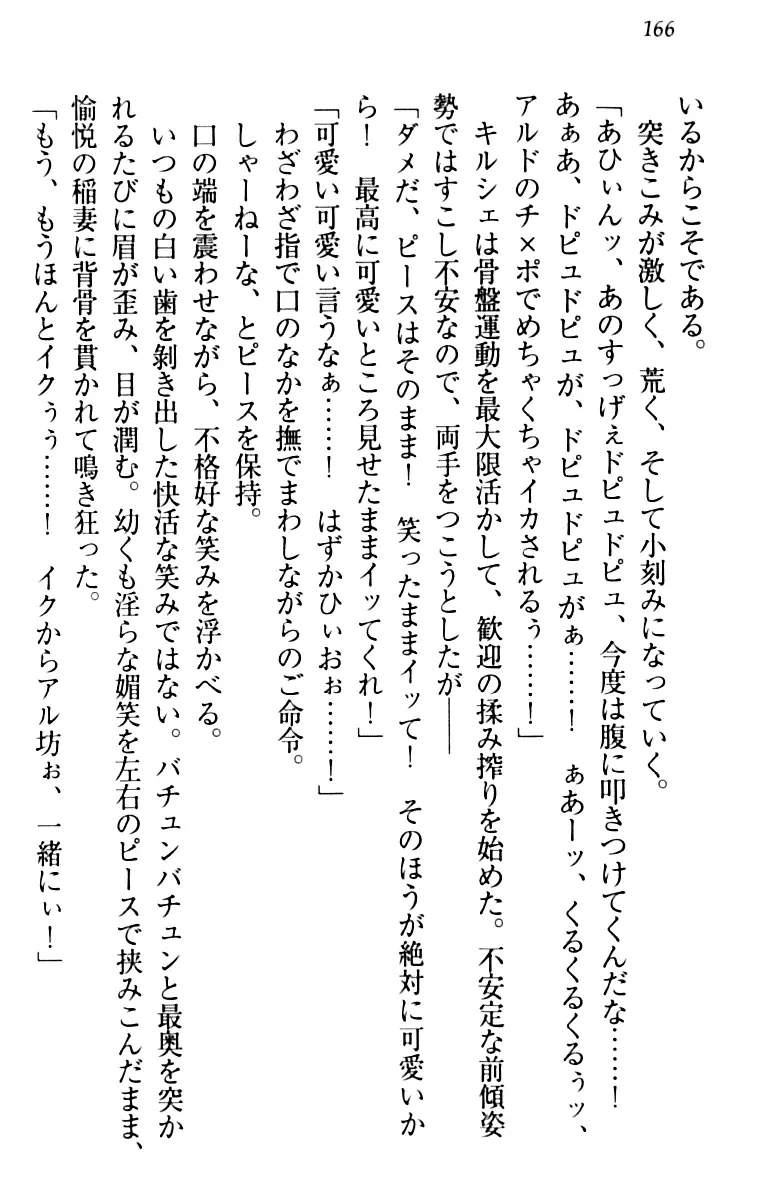 166
いるからこそである。
突きこみが激しく、荒く、そして小刻みになっていく。
「あひぃんッ、あのすっげぇドピュドピュ、今度は腹に叩きつけてくんだな……！
あぁあ、ドピュドピュが、ドピュドピュがぁ……！　ぁあーッ、くるくるくるぅッ、
アルドのチ×ポでめちゃくちゃイカされるぅ……！」
キルシェは骨盤運動を最大限活かして、歓迎の揉み搾りを始めた。不安定な前傾姿
勢ではすこし不安なので、両手をつこうとしたが――
「ダメだ、ピースはそのまま！　笑ったままイッて！　そのほうが絶対に可愛いか
ら！　最高に可愛いところ見せたままイッてくれ！」
「可愛い可愛い言うなぁ……！　はずかひぃおぉ……！」
わざわざ指で口のなかを撫でまわしながらのご命令。
しゃーねーな、とピースを保持。
口の端を震わせながら、不格好な笑みを浮かべる。
いつもの白い歯を剝き出した快活な笑みではない。バチュンバチュンと最奥を突か
れるたびに眉が歪み、目が潤む。幼くも淫らな媚笑を左右のピースで挟みこんだまま、
愉悦の稲妻に背骨を貫かれて鳴き狂った。
「もう、もうほんとイクぅぅ……！　イクからアル坊ぉ、一緒にぃ！」